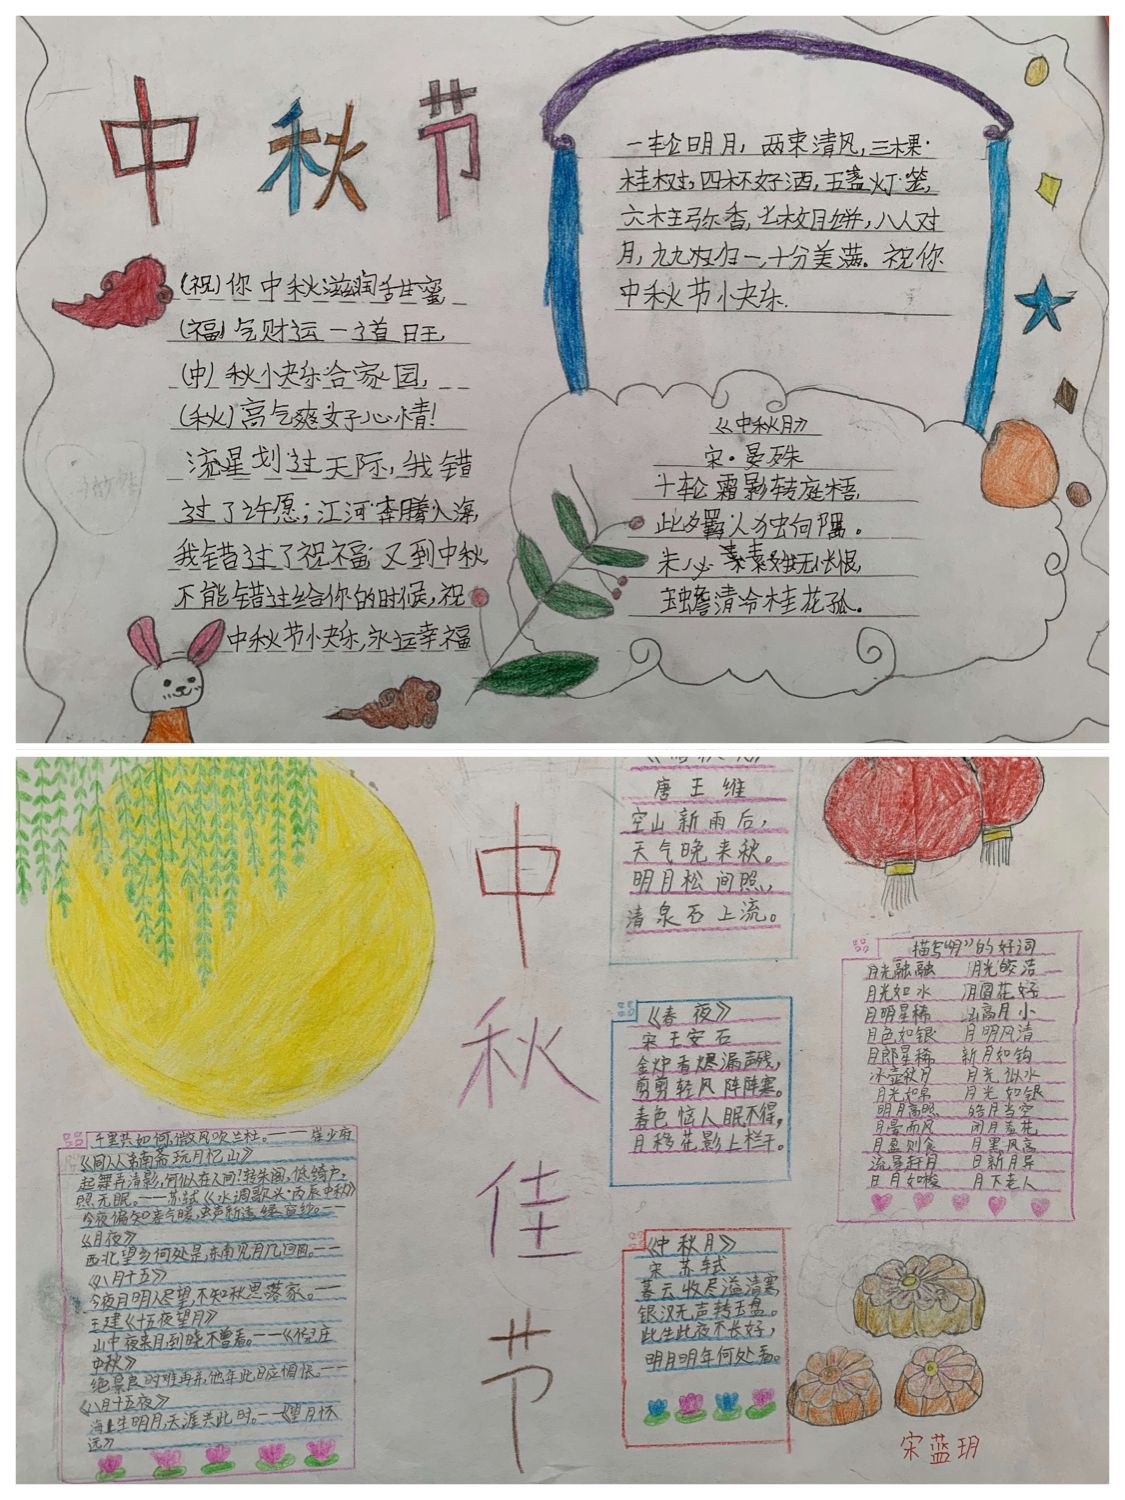 中秋节
(祝)你中秋滋润甜蜜
(福)气财运一道旺
(中)秋快乐合家团
(秋)高气爽好心情!
流星划过天际,我错
过了许愿;江河奔腾入海,
我错过了祝福 又到中秋
不能错过给你的时候,祝
中秋节快乐,永远幸福
一轮明月,两束清风,三棵
桂树,四杯好酒,五盏灯笼,
六柱弥香,七枚月饼,八人对
月,九九归一,十分美满。祝你
中秋节快乐.
《中秋月》
宋·晏殊
十轮霜影转庭梧,
此夕羁人独向隅。
未必素娥无怅恨,
玉蟾清冷桂花孤。
中秋佳节
唐 王 维
空山新雨后,
天气晚来秋。
明月松间照,
清泉石上流。
《春 夜》
宋 王安石
金炉香烬漏声残,
剪剪轻风阵阵寒。
春色恼人眠不得,
月移花影上栏干。
《中秋月》
宋 苏轼
暮云收尽溢清寒
银汉无声转玉盘。
此生此夜不长好,
明月明年何处看。
描写“月”的好词
月光融融 月光皎洁
月光如水 月圆花好
月明星稀 山高月小
月色如银 月明风清
月郎星稀 新月如钩
冰壶秋月 月光似水
月光如帛 月光如银
明月高照 皓月当空
月晕而风 闭月羞花
月盈则食 月黑风高
流星赶月 日新月异
日月如梭 月下老人
千里共如何,微风吹兰杜。——崔少府
《同从弟南斋玩月忆山》
起舞弄清影,何似在人间!转朱阁,低绮户,
照无眠。——苏轼《水调歌头·丙辰中秋》
今夜偏知春气暖,虫声新透绿窗纱。——
《月夜》
西北望乡何处是,东南见月几回圆。——
《八月十五》
今夜月明人尽望,不知秋思落家。——
王建《十五夜望月》
山中夜来月,到晓不曾看。——《
中秋》
绝景良时难再并,他年此日应惆怅。——
《八月十五夜》
海上生明月,天涯共此时。——《望月怀
远》
宋蓝玥